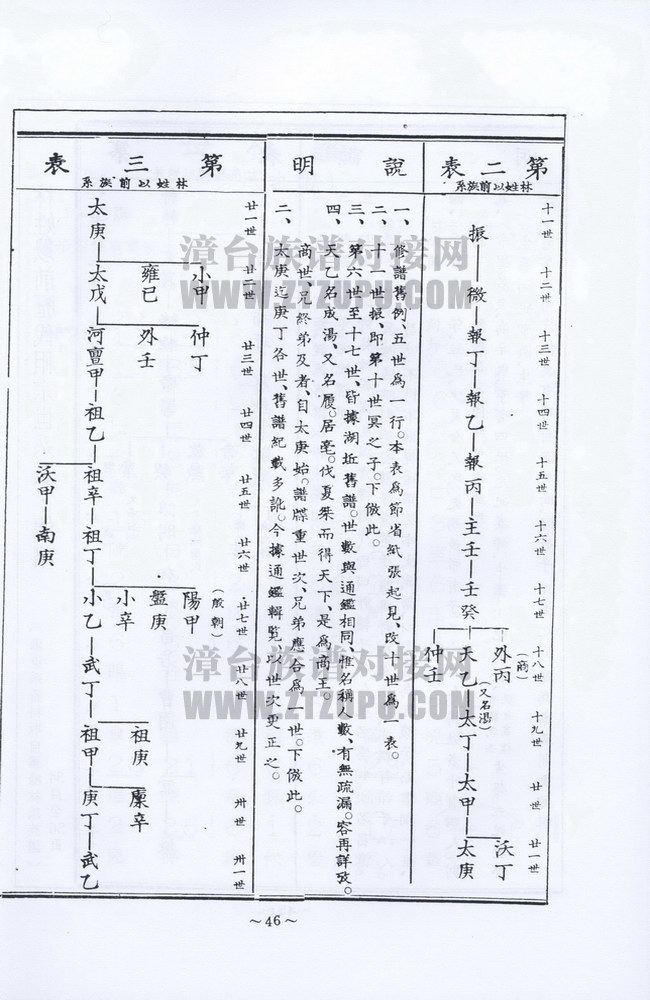 第二表
林姓以前族系
十一世 十二世 十三世 十四世 十五世 十六世 十七世 十八世 十九世 廿世 廿一世
(商)
外丙 沃丁
振—微—報丁—報乙—報丙—主壬—壬癸—天乙—太丁—太甲—太庚
(又名湯)
仲壬
說明
一、修譜舊例、五世爲一行。本表爲節省紙張起見、改十世爲一表。
二、十一世振、即第十世冥之子。下倣此。
三、第六世至十七世、皆據湖坵舊譜。世數與通鑑相同、惟名稱人數、有無疏漏。容再詳攷。
四、天乙名成湯、又名履。居亳。伐夏桀而得天下、是爲商王。
商世、兄終弟及者、自太庚始。譜牒重世次、兄弟應合爲一世。下倣此。
二、太庚迄庚丁各世、舊譜紀載多訛。今據通鑑輯覽、以世次更正之。
第三表
林姓以前族系
廿一世 廿二世 廿三世 廿四世 廿五世 廿六世 廿七世 廿八世 廿九世 卅世 卅一世
(殷朝)
小甲 仲丁 陽甲
雍已 外壬 盤庚 祖庚 廩辛
小辛
太庚—太戊—河亶甲—祖乙—祖辛—祖丁—小乙—武丁—祖甲—庚丁—武乙
沃甲—南庚
~46~
漳台族谱对接网
WWW.ZTZUPU.COM
漳台族谱对接网
WWW.ZTZUPU.COM